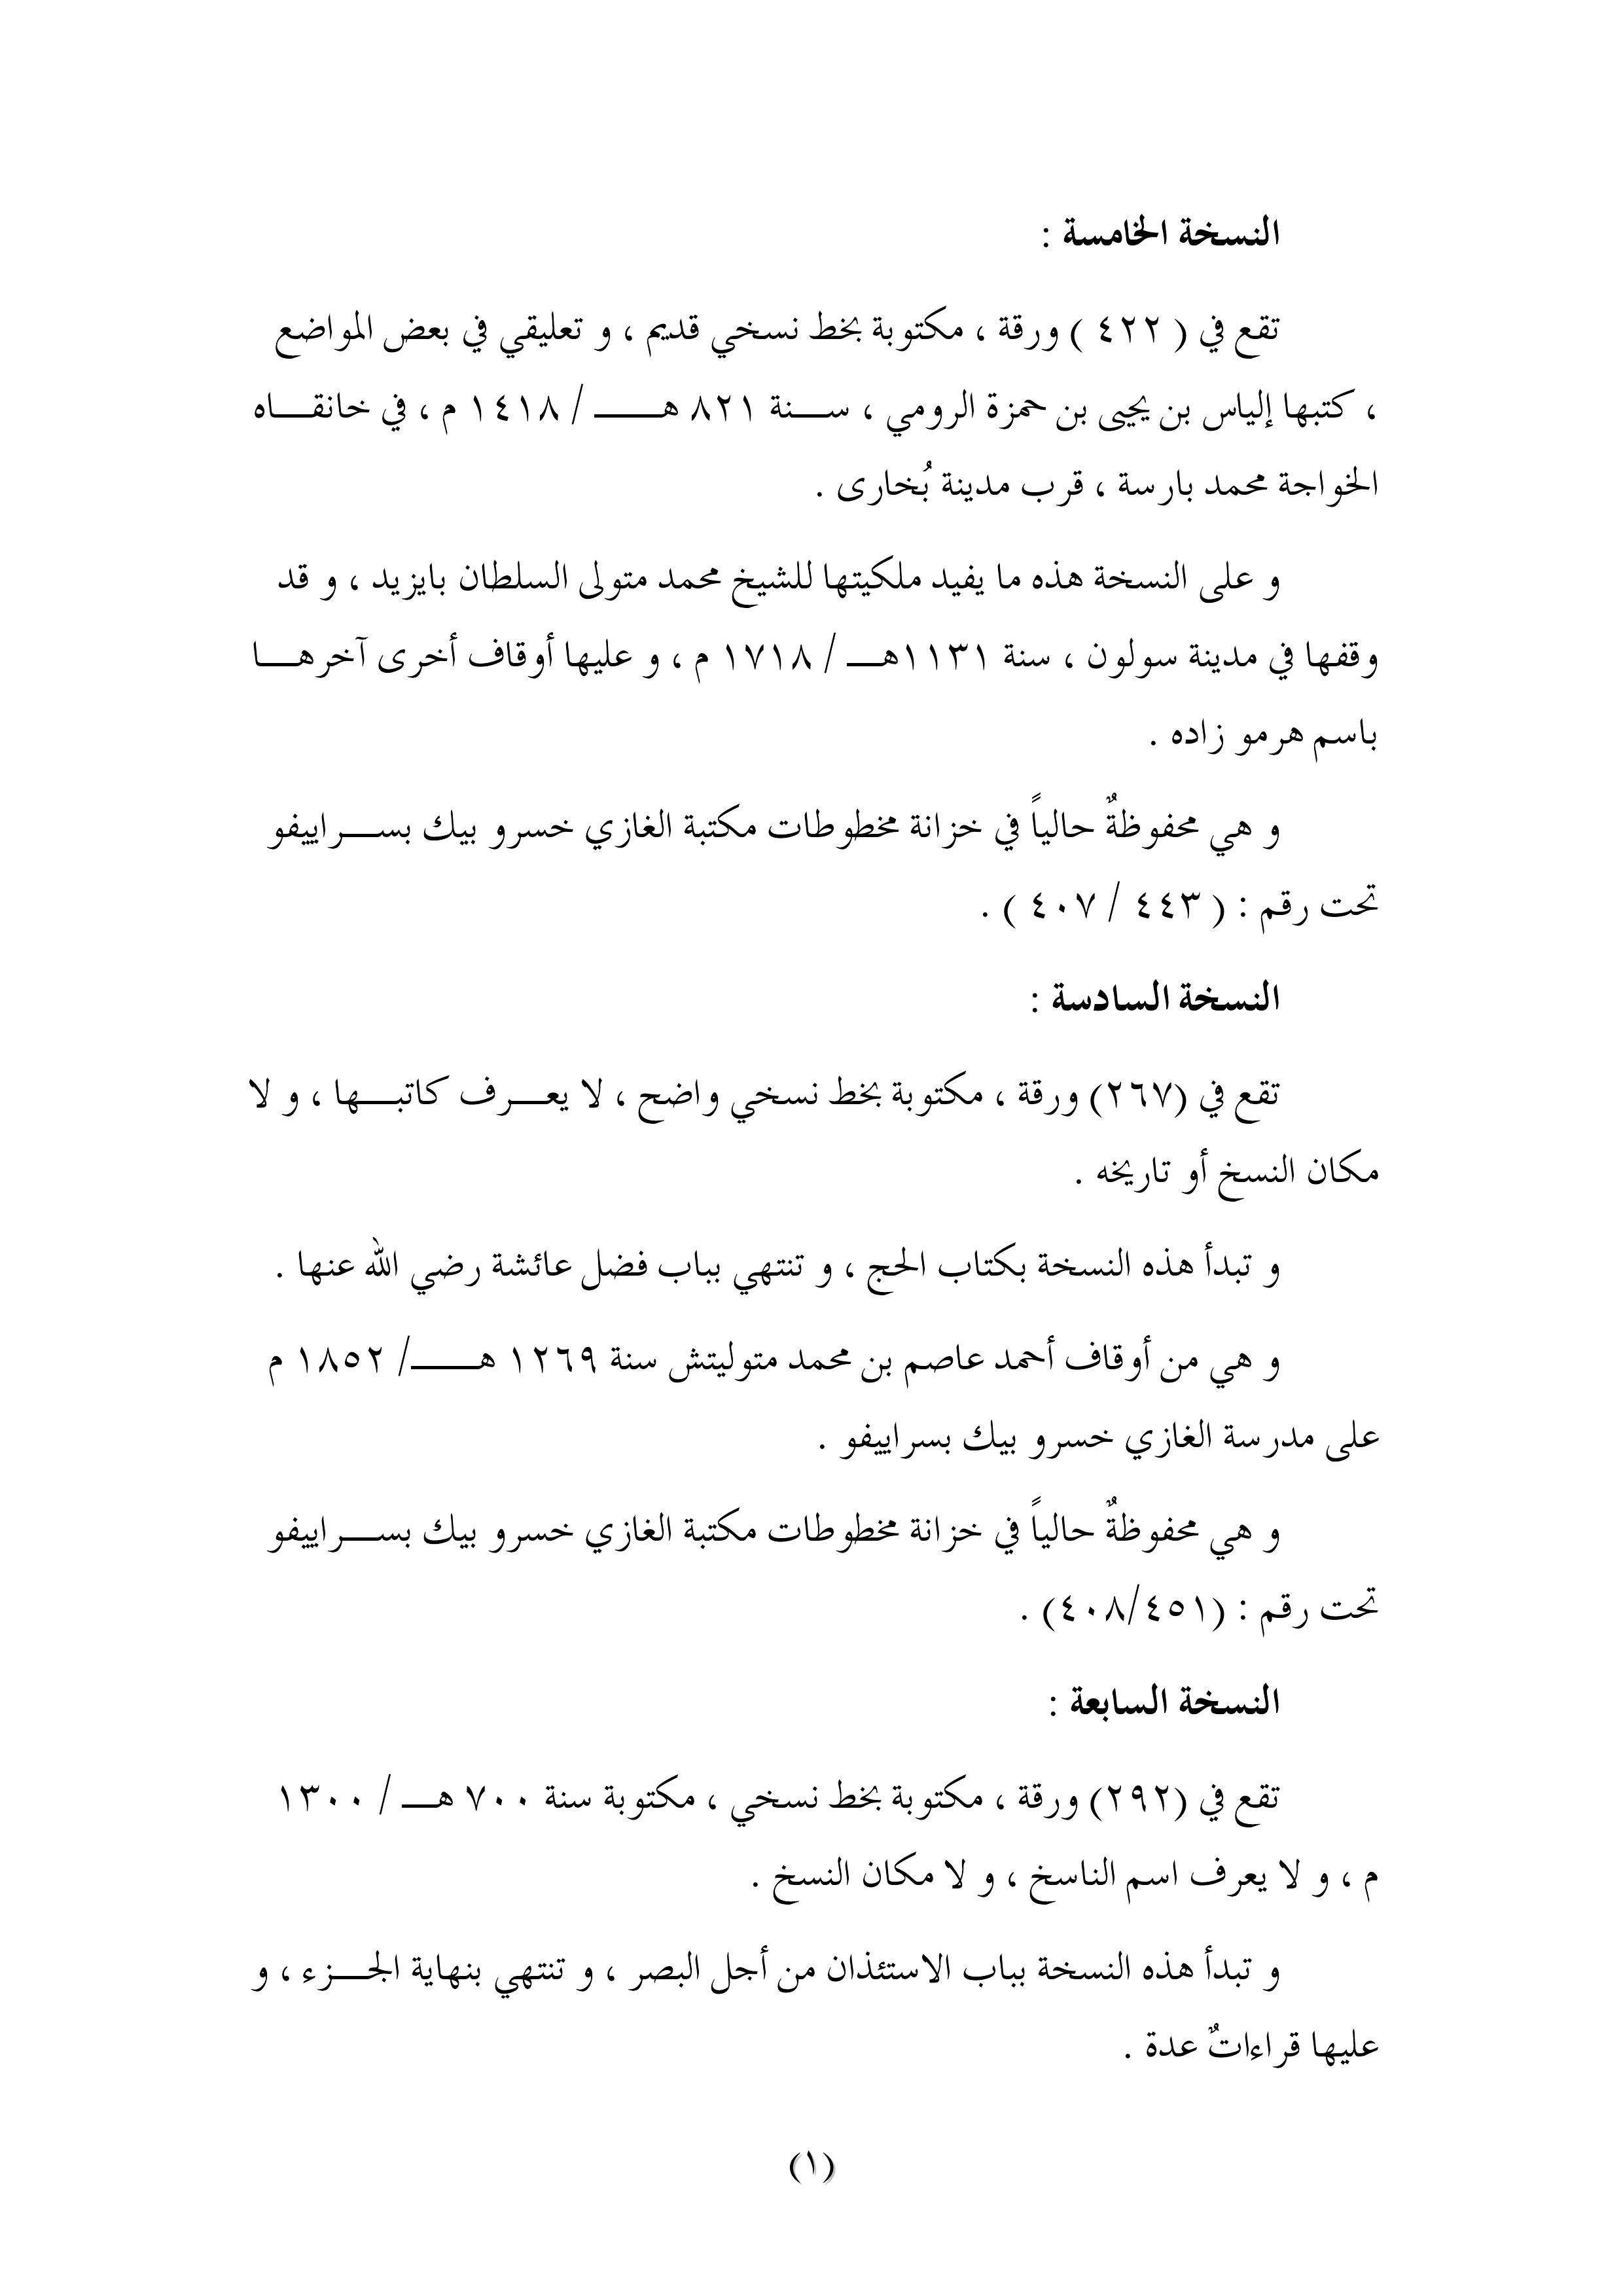 النسخة الخامسة :
تقع في ( ٤٢٢ ) ورقة ، مكتوبة بخط نسخي قديم ، و تعليقي في بعض المواضع
، كتبها إلياس بن يحيى بن حمزة الرومي ، ســنة ٨٢١ هـــ / ١٤١٨ م ، في خانقــاه
الخواجة محمد بارسة ، قرب مدينة بُخارى .
و على النسخة هذه ما يفيد ملكيتها للشيخ محمد متولى السلطان بايزيد ، و قد
وقفها في مدينة سولون ، سنة ١١٣١هــ / ١٧١٨ م ، و عليها أوقاف أخرى آخرهــا
باسم هرمو زاده .
و هي محفوظةٌ حالياً في خزانة مخطوطات مكتبة الغازي خسرو بيك بســراييفو
تحت رقم : ( ٤٤٣ / ٤٠٧ ) .
النسخة السادسة :
تقع في (٢٦٧) ورقة ، مكتوبة بخط نسخي واضح ، لا يعــرف كاتبــها ، و لا
مكان النسخ أو تاريخه .
و تبدأ هذه النسخة بكتاب الحج ، و تنتهي بباب فضل عائشة رضي الله عنها .
و هي من أوقاف أحمد عاصم بن محمد متوليتش سنة ١٢٦٩ هـــ/ ١٨٥٢ م
على مدرسة الغازي خسرو بيك بسراييفو .
و هي محفوظةٌ حالياً في خزانة مخطوطات مكتبة الغازي خسرو بيك بســراييفو
تحت رقم : (٤٠٨/٤٥١) .
النسخة السابعة :
تقع في (٢٩٢) ورقة ، مكتوبة بخط نسخي ، مكتوبة سنة ٧٠٠ هــ / ١٣٠٠
م ، و لا يعرف اسم الناسخ ، و لا مكان النسخ .
و تبدأ هذه النسخة بباب الاستئذان من أجل البصر ، و تنتهي بنهاية الجــزء ، و
عليها قراءاتٌ عدة .
(١)